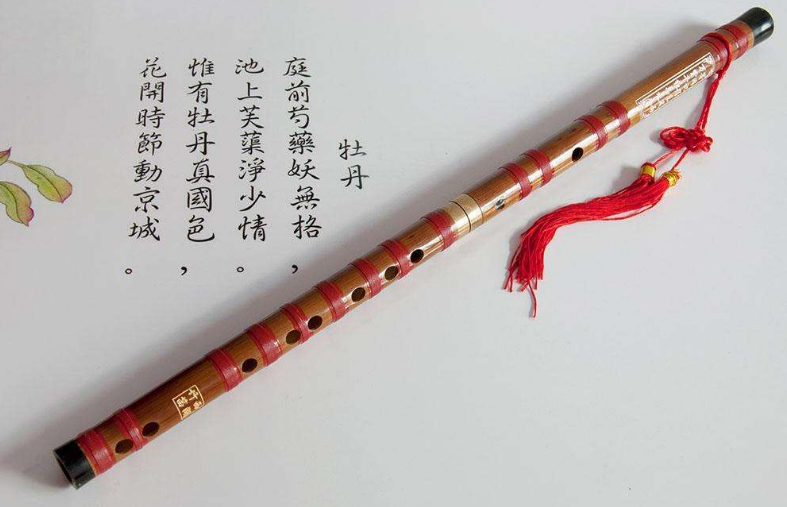 牡丹
庭前芍藥妖無格，
池上芙蕖淨少情。
惟有牡丹真國色，
花開時節動京城。